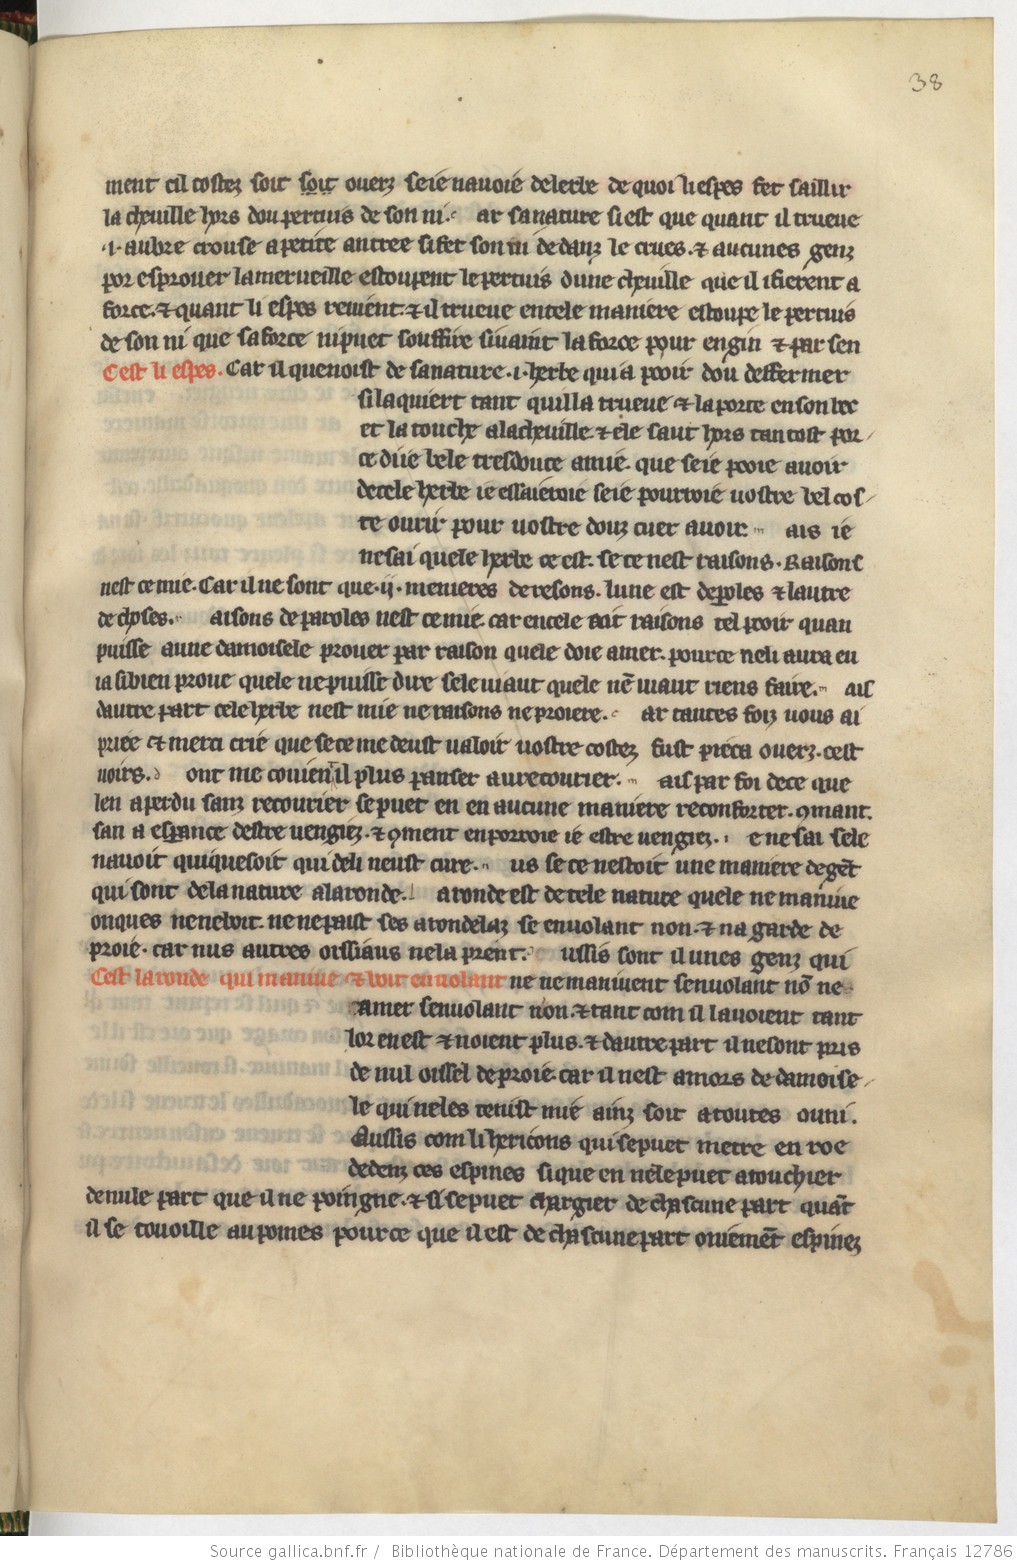 38
ment cil costez soit soit ouerz seie nauoie delerbe de quoi li espes fet saillir
la cheuille hors dou pertuis de son ni. ar sa nature si est que quant il trueue
.i. aubre crouse a petite antree si fet son ni dedanz le crues. & aucunes genz
por esprouer la merueille estoupent le pertuis dune cheuille que il i fierent a
force. & quant li espes reuient. & il trueue en tele maniere estoupe le pertuis
de son ni que sa force ni puet souffire si uaint la force pour engin & par sen
Cest li espes. Car il quenoist de sa nature .i. herbe qui a pooir dou deffermer
si la quiert tant quil la trueue & la porte en son bec
et la touche a la cheuille & ele saut hors tantost por
ce die bele tresdouce amie. que se ie pooie auoir
de tele herbe ie essaieroie se ie pourroie uostre bel cos
te ourir pour uostre douz cuer auoir. ais ie
ne sai quele herbe ce est. se ce nest raisons. Raisons
nest ce mie. Car il ne sont que .ij. menieres de resons. lune est de paroles & lautre
de choses. aisons de paroles nest ce mie. car encele ait raisons tel pooir quan
puisse a une damoisele prouer par raison quele doie amer. pource ne li aura en
ia si bien proue quele ne puisse dire sele uiaut quele nē uiaut riens faire. ais
dautre part cele herbe nest mie ne raisons ne proiere. ar tantes foiz uous ai
priee & merci crie que se ce me deust ualoir uostre costez fust pieca ouerz. cest
uoirs. ont me couient il plus panser au recourier. ais par foi de ce que
len a perdu sanz recourier se puet en en aucune maniere reconforter. 9mant.
san a esperance destre uengiez. & 9ment en porroie ie estre uengiez. e ne sai sele
nauoit quiquesoit qui deli neust cure. us se ce nestoit une maniere de gēt
qui sont de la nature a laronde. aronde est de tele nature quele ne maniue
onques ne ne boit. ne ne paist ses arondelaz se en uolant non. & na garde de
proie. car nus autres oissiaus ne la prent. ussis sont il unes genz qui
Cest laronde qui maniue & boit en uolant ne ne maniuent senuolant nō ne
amer senuolant non. & tant com il la uoient tant
lor en est & noient plus. & dautre part il ne sont pris
de nul oissel de proie. car il nest amors de damoise
le qui ne les tenist mie ainz soit a toutes ouni.
Aussis com li hericons qui se puet metre en roe
dedenz ces espines si que en ne le puet atouchier
de nule part que il ne poingne. & si se puet chargier de chascune part quāt
il se touoille au pomes pource que il est de chascune part oniement espinez
Source gallica.bnf.fr / Bibliothèque nationale de France. Département des manuscrits. Français 12786